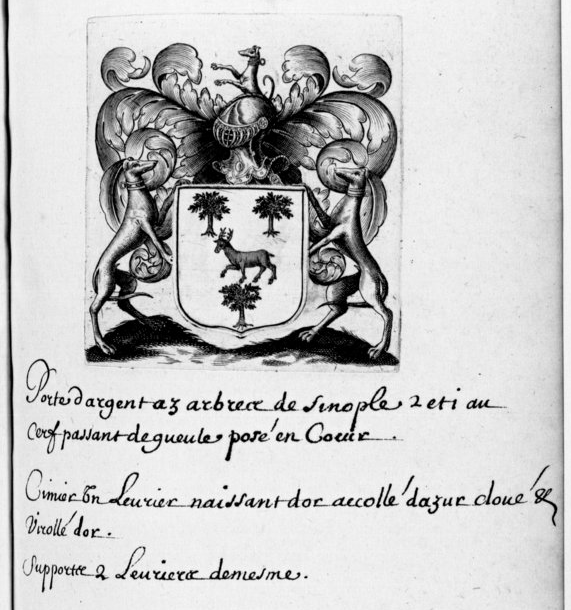 Porte d'argent a 3 arbrea de sinople 2 et i au
cerf passant de gueule posé en Coeur .
Cimier Un Leurier naissant dor accollé dazur cloué &
Virollé dor .
Supportea 2 Leuriera demesme .